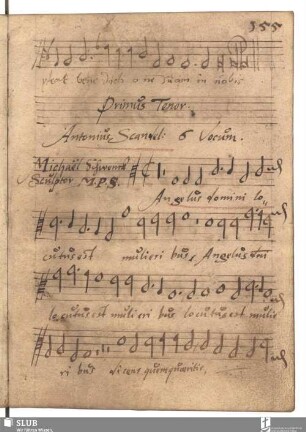 355
in nobis
Primus Tenor.
Antonius Scandeli 6 Vocum.
Michaël
Sculptor M.P.S.
Angelus domini lo
cutus est mulieri bus, Angelus dni
locutus est mulieri bus locutus est mulie
ri bus dicens quem quæritis,
SLUB
Wir führen Wissen.